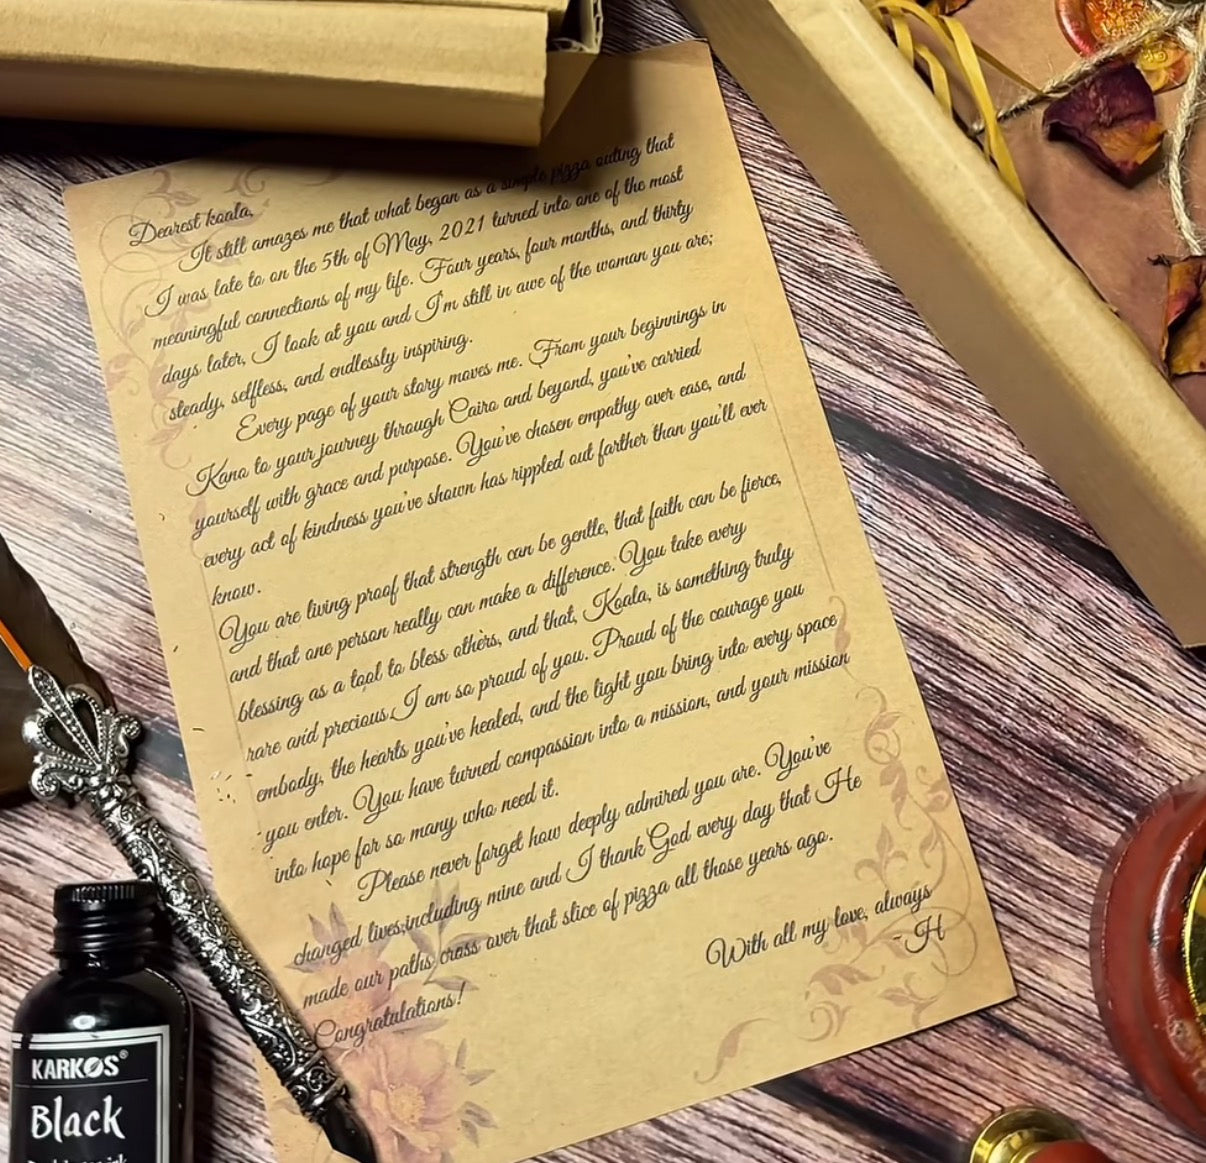 Dearest koala,
It still amazes me that what began as a simple pizza outing that
I was late to on the 5th of May, 2021 turned into one of the most
meaningful connections of my life. Four years, four months, and thirty
days later, I look at you and I'm still in awe of the woman you are;
steady, selfless, and endlessly inspiring.
Every page of your story moves me. From your beginnings in
Kano to your journey through Cairo and beyond, you've carried
yourself with grace and purpose. You've chosen empathy over ease, and
every act of kindness you've shown has rippled out farther than you'll ever
know.
You are living proof that strength can be gentle, that faith can be fierce,
and that one person really can make a difference. You take every
blessing as a tool to bless others, and that, Koala, is something truly
rare and precious. I am so proud of you. Proud of the courage you
embody, the hearts you've healed, and the light you bring into every space
you enter. You have turned compassion into a mission, and your mission
into hope for so many who need it.
Please never forget how deeply admired you are. You've
changed lives,including mine and I thank God every day that He
made our paths cross over that slice of pizza all those years ago.
Congratulations!
With all my love, always
- H
KARKOS®
Black